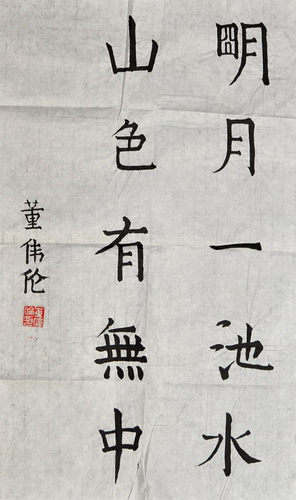 明月一池水
山色有無中
董伟伦